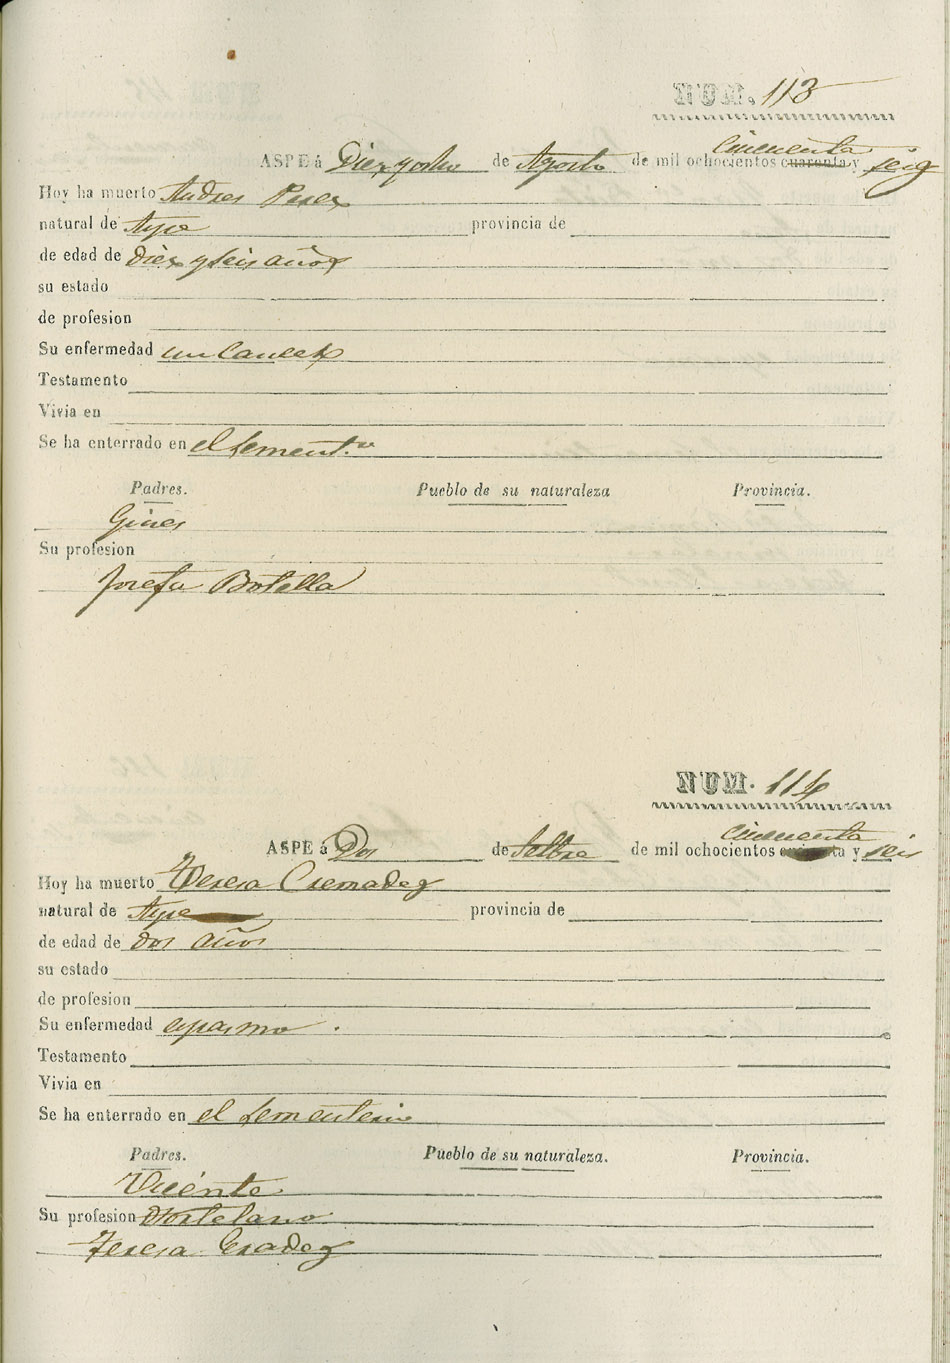 NUM. 113
ASPE á Diez y ocho de Agosto de mil ochocientos cuarenta y cincuenta seis
Hoy ha muerto Andres Perez
natural de Aspe provincia de
de edad de diez y seis años
su estado
de profesion
Su enfermedad un Cancer
Testamento
Vivia en
Se ha enterrado en el Sement.o
Padres. Pueblo de su naturaleza Provincia.
Gines
Su profesion
Josefa Botella
NUM. 114
ASPE á Dos de Setbre de mil ochocientos cincuenta y seis
Hoy ha muerto Teresa Cremadez
natural de Aspe provincia de
de edad de dos años
su estado
de profesion
Su enfermedad espasmo .
Testamento
Vivia en
Se ha enterrado en el Sementerio
Padres. Pueblo de su naturaleza. Provincia.
Vicente
Su profesion Hortelano
Teresa